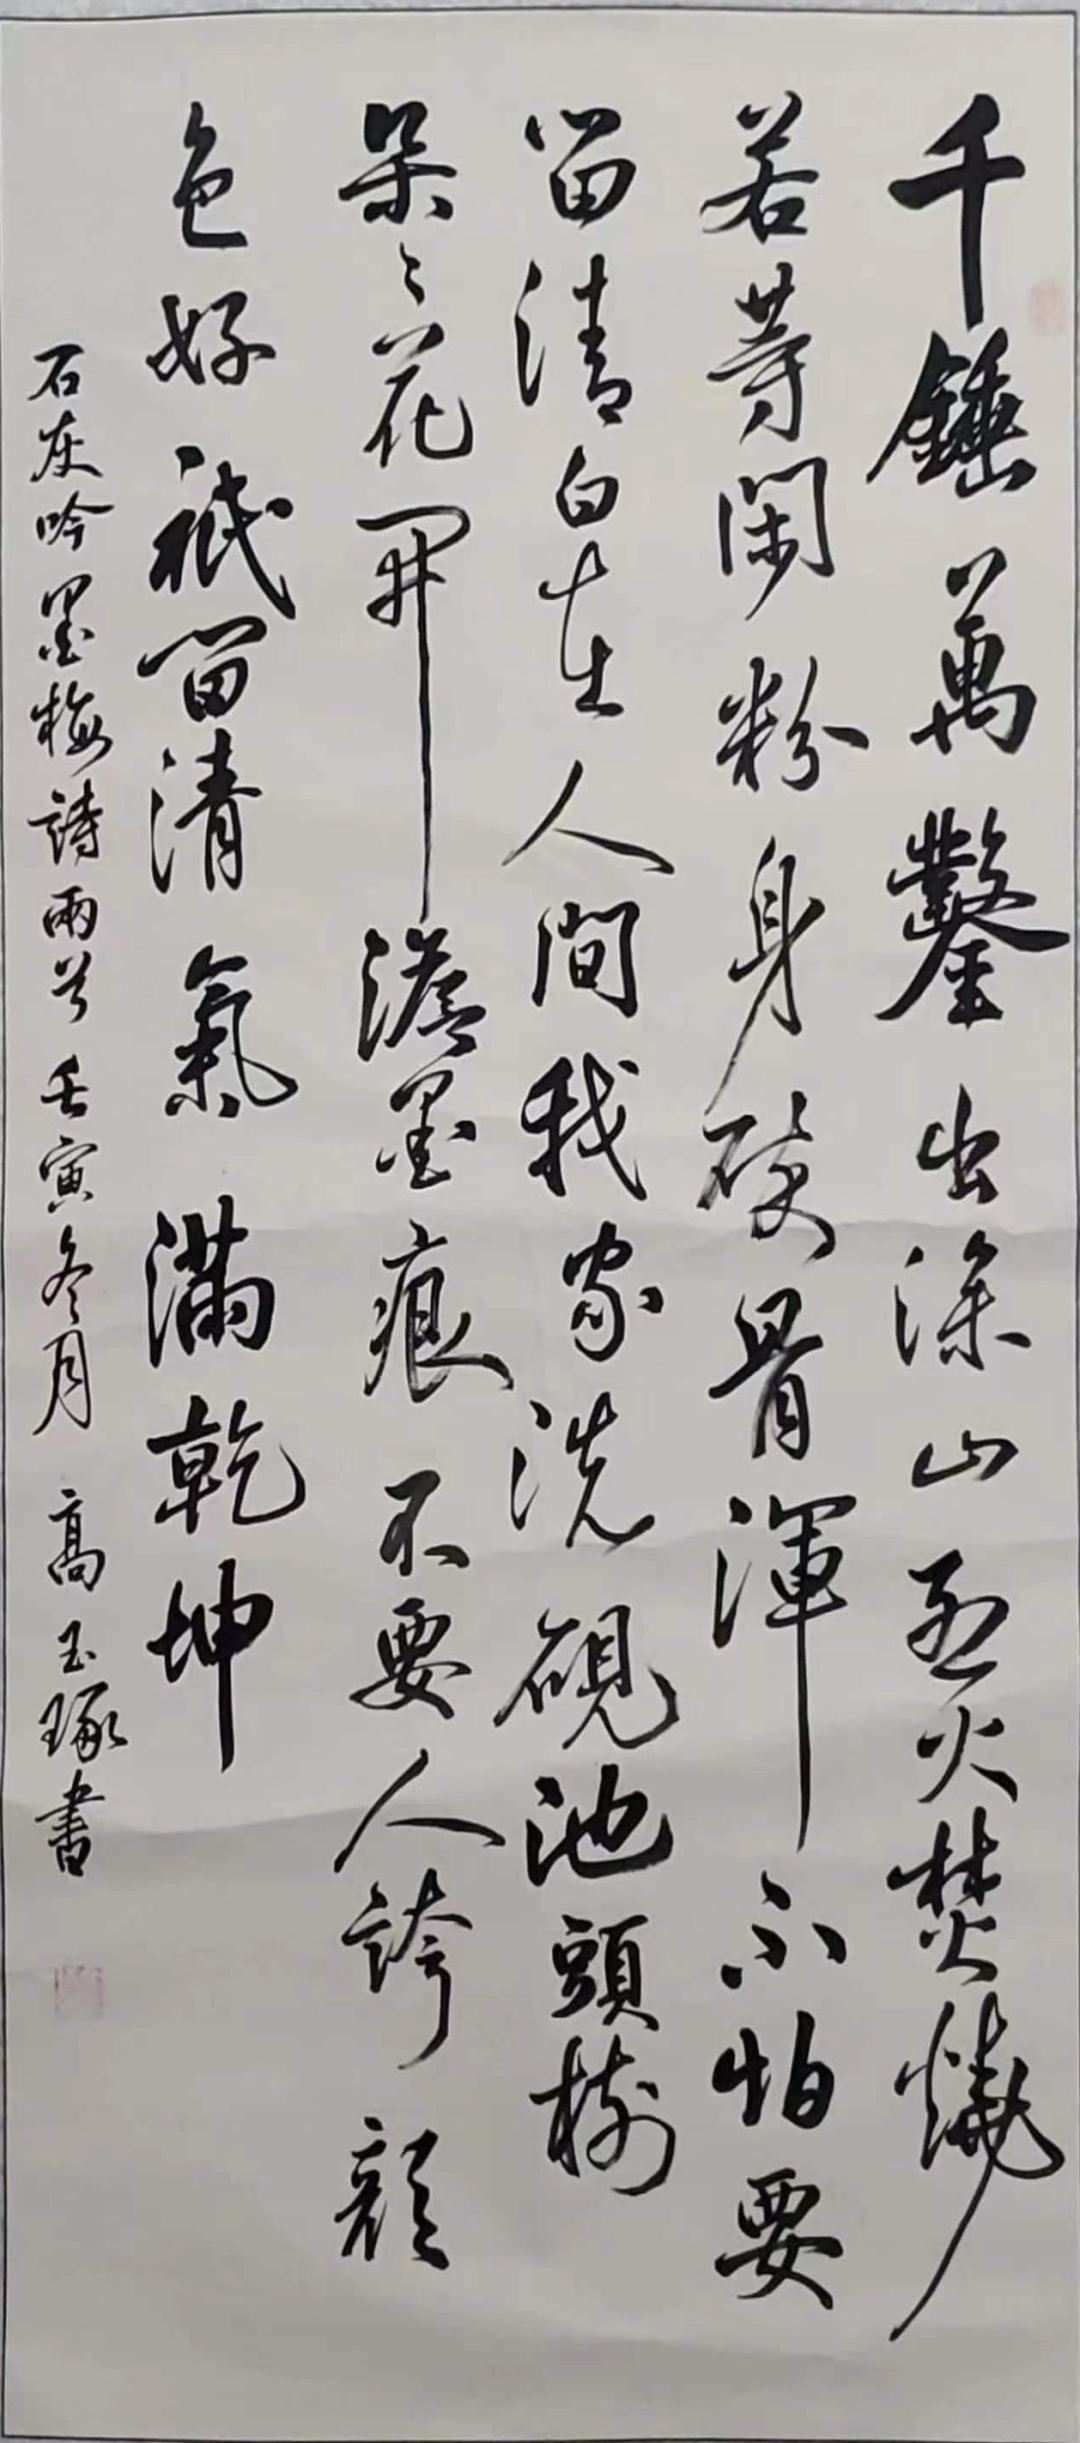 千錘萬鑿出深山烈火焚燒
若等閑粉身碎骨渾不怕要
留清白在人間我家洗硯池頭樹
朵〻花開澹墨痕不要人誇顏
色好祇留清氣滿乾坤
石灰吟墨梅詩兩首壬寅冬月高玉琢書